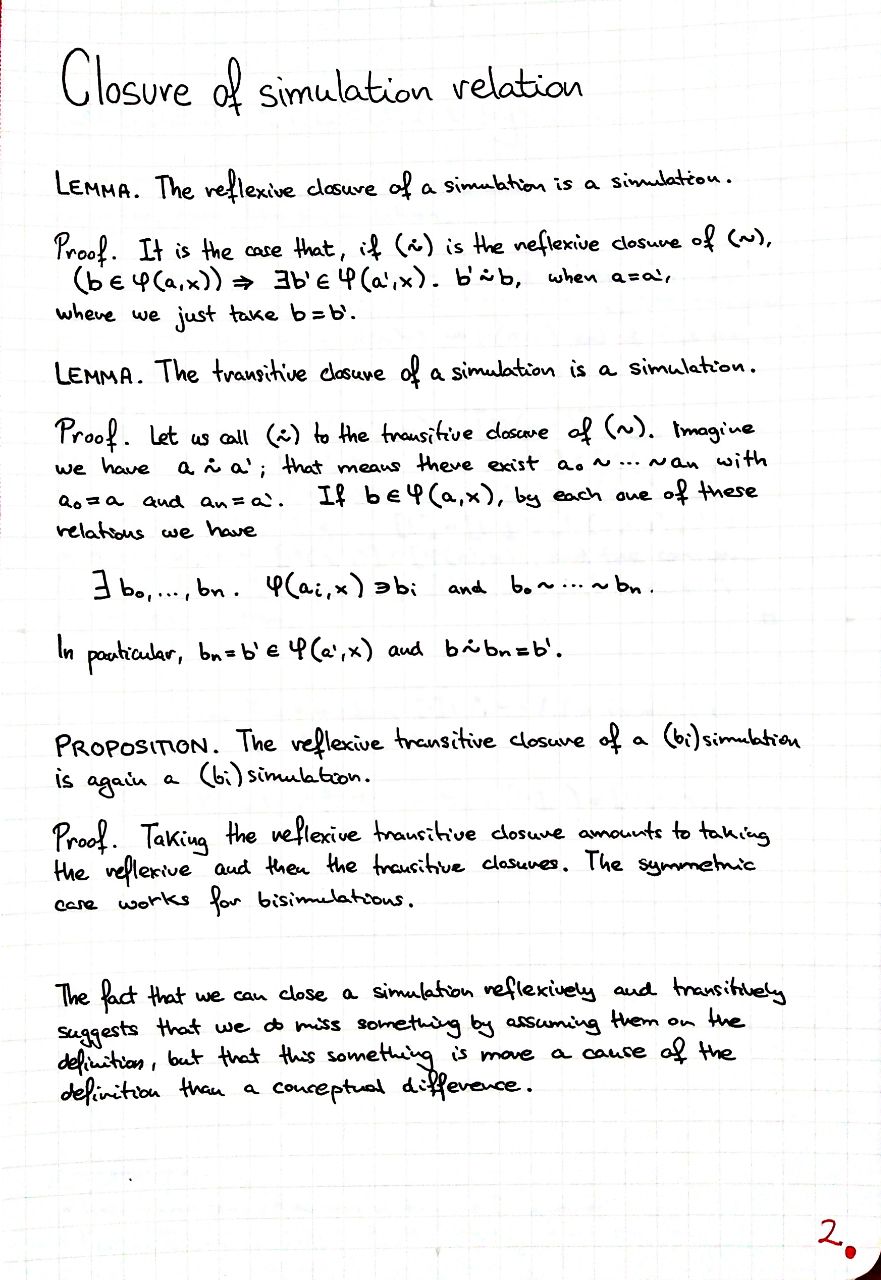 Closure of simulation relation
LEMMA. The reflexive closure of a simulation is a simulation.
Proof. It is the case that, if (∻) is the reflexive closure of (~),
(b ∈ φ(a,x)) ⇒ ∃b' ∈ φ(a',x). b' ∻ b, when a=a',
where we just take b=b'.
LEMMA. The transitive closure of a simulation is a simulation.
Proof. Let us call (∻) to the transitive closure of (~). Imagine
we have a ∻ a'; that means there exist a₀ ~ ... ~ aₙ with
a₀=a and aₙ=a'. If b ∈ φ(a,x), by each one of these
relations we have
∃ b₀,...,bₙ. φ(aᵢ,x) ∋ bᵢ and b₀ ~ ... ~ bₙ.
In particular, bₙ=b' ∈ φ(a',x) and b ∻ bₙ=b'.
PROPOSITION. The reflexive transitive closure of a (bi)simulation
is again a (bi)simulation.
Proof. Taking the reflexive transitive closure amounts to taking
the reflexive and then the transitive closures. The symmetric
case works for bisimulations.
The fact that we can close a simulation reflexively and transitively
suggests that we do miss something by assuming them on the
definition, but that this something is more a cause of the
definition than a conceptual difference.
2.